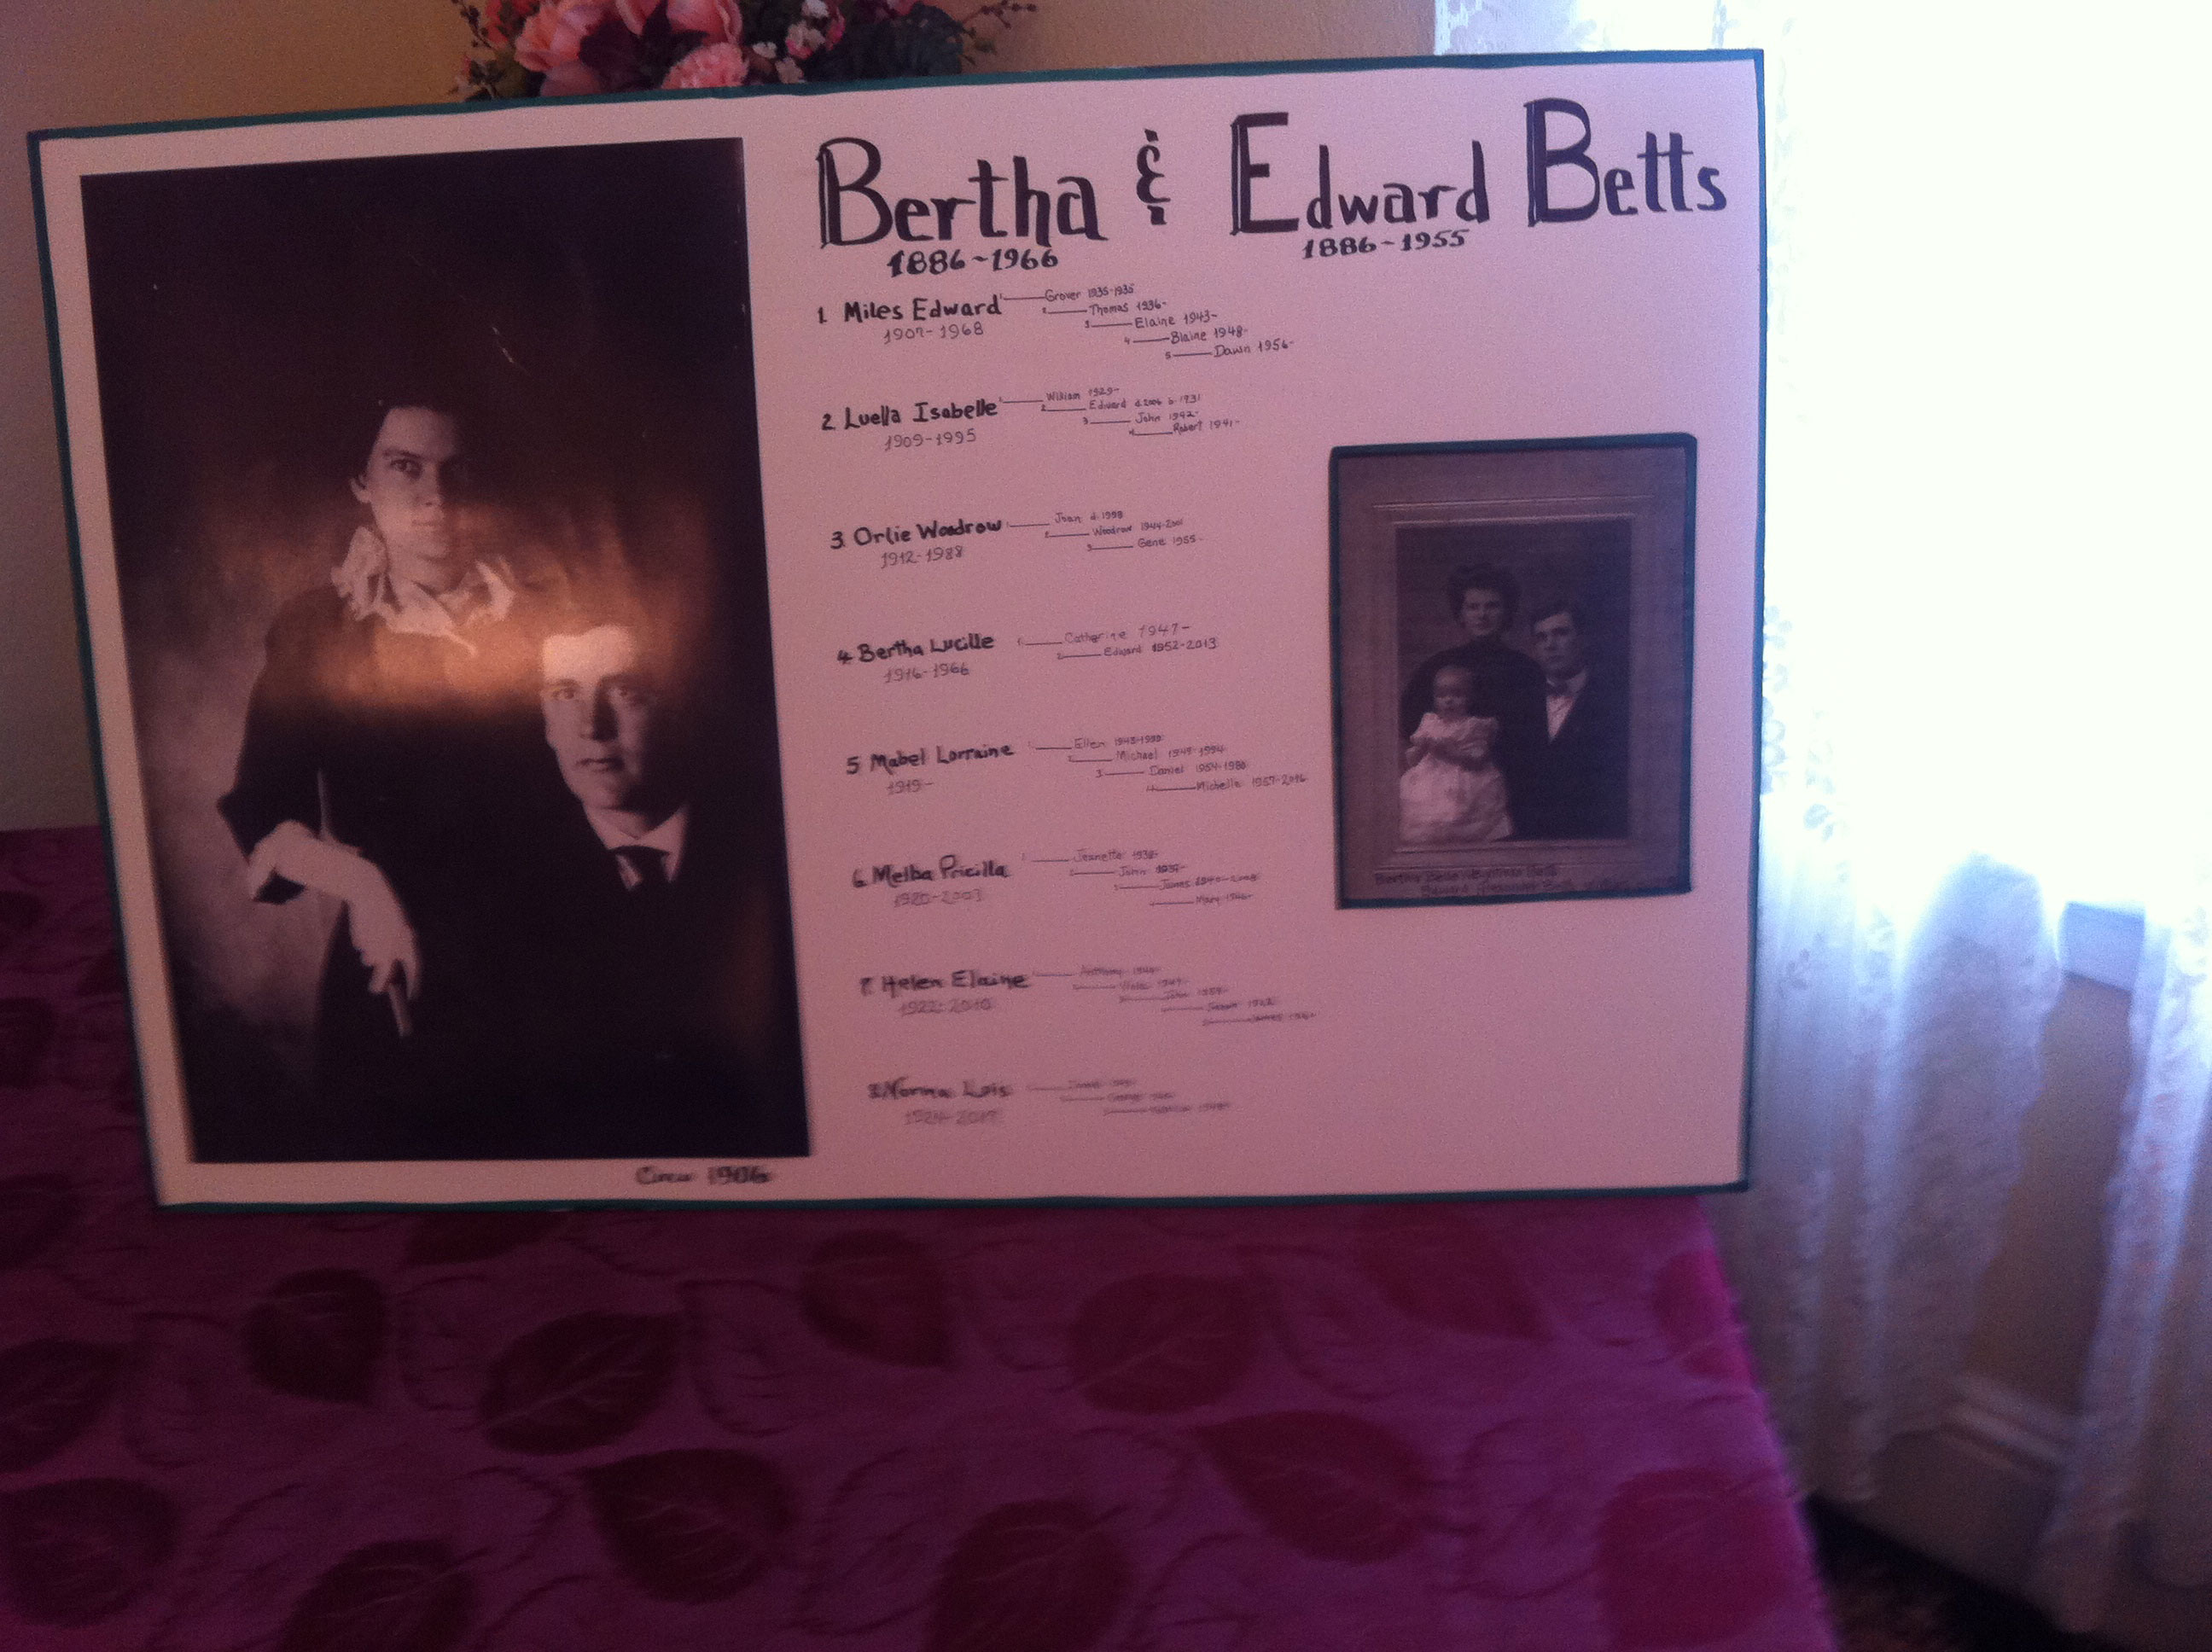 Bertha & Edward Betts
1886-1966
1886-1955
1. Miles Edward
1907-1968
1 Grover 1935-1935
2 Thomas 1936-
3 Elaine 1943-
4 Blaine 1948-
5 Dawn 1956-
2. Luella Isabelle
1909-1995
1 William 1929-
2 Edward d.2006 b.1931
3 John 1942-
4 Robert 1941-
3. Orlie Woodrow
1912-1988
1 Joan d.1998
2 Woodrow 1944-2001
3 Gene 1955-
4. Bertha Lucille
1916-1966
1 Catherine 1947-
2 Edward 1952-2013
5 Mabel Lorraine
1919-
1 Ellen
2 Michael
3 Daniel
4 Michelle 1957-2016
6. Melba Pricilla
1920-2003
1 Jeanette
2 John
3 James
4 Mary
7. Helen Elaine
1922-2010
Anthony
John
8. Norma Lois
George
Circa 1906
Bertha Belle
Edward Alexander Betts